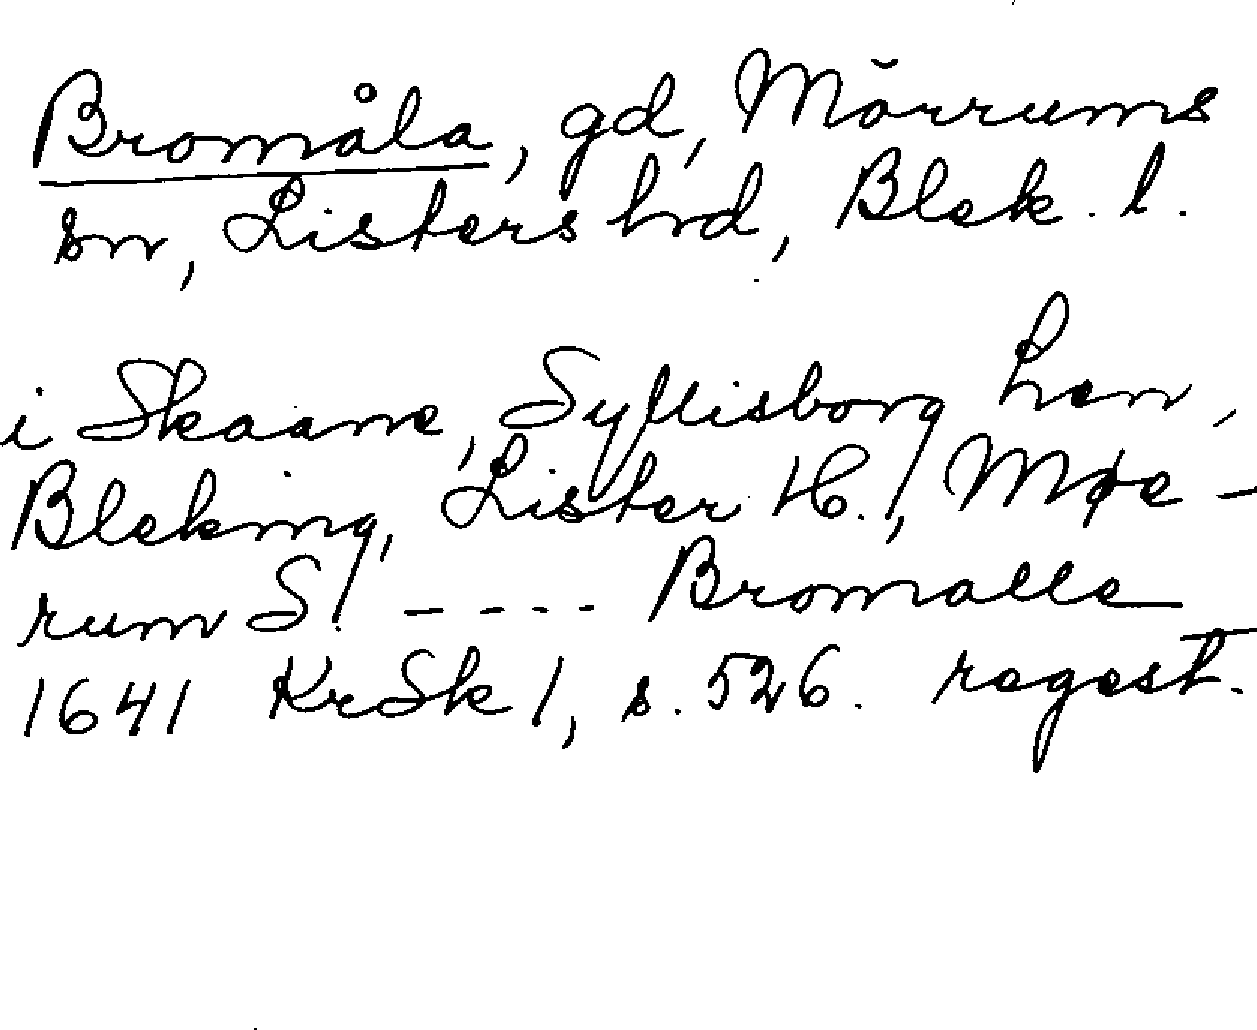 Bromåla, gd, Mörrums
sn, Listers hrd, Blek. l.
i Skaane, Sylluisborg Len,
Bleking, Lister H./, Møe-
rum S/. ---- Bromalle
1641 KrSk 1, s. 526. regest.